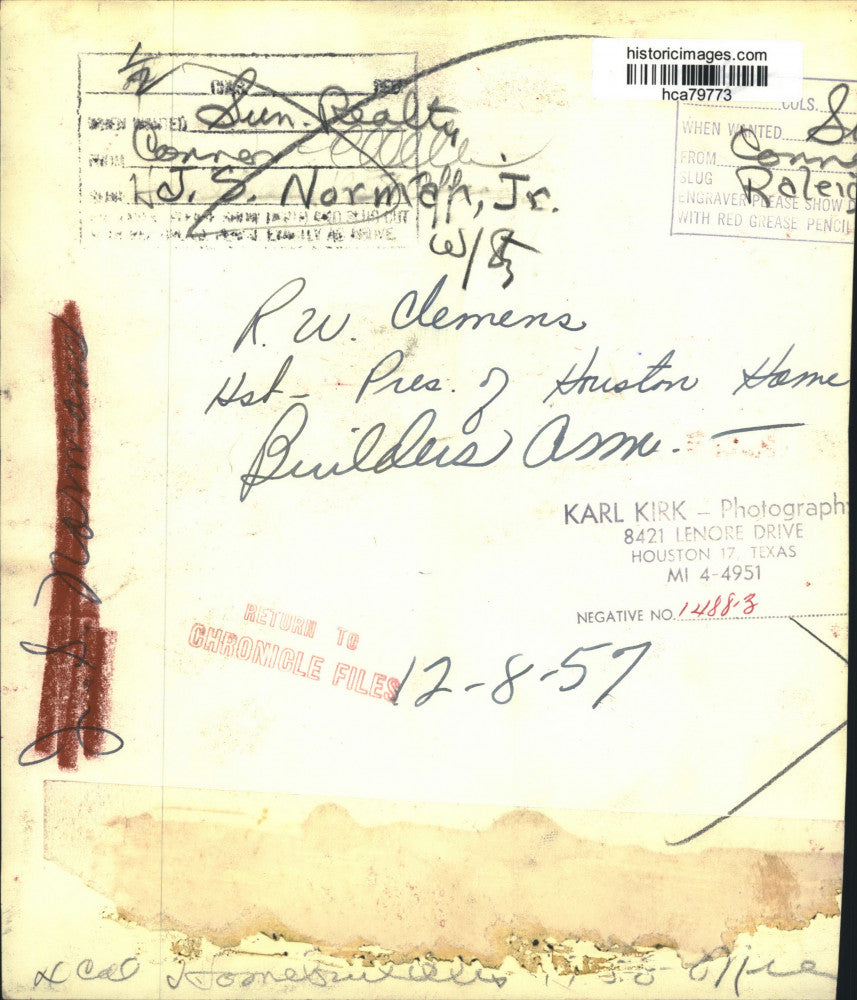 historicimages.com
hca79773
1/2
Sun. Realty
WHEN WANTED
Conner
FROM
J. S. Norman, Jr.
w/
COLS.
WHEN WANTED
FROM
SLUG
Raleig
ENGRAVER PLEASE SHOW
WITH RED GREASE PENCIL
R. W. Clemens
Hst - Pres. of Houston Home
Builders Assn. —
KARL KIRK — Photograph
8421 LENORE DRIVE
HOUSTON 17, TEXAS
MI 4-4951
NEGATIVE NO. 1488-3
RETURN TO
CHRONICLE FILES
12-8-57
J. S. Norman
Homebuilders
Office